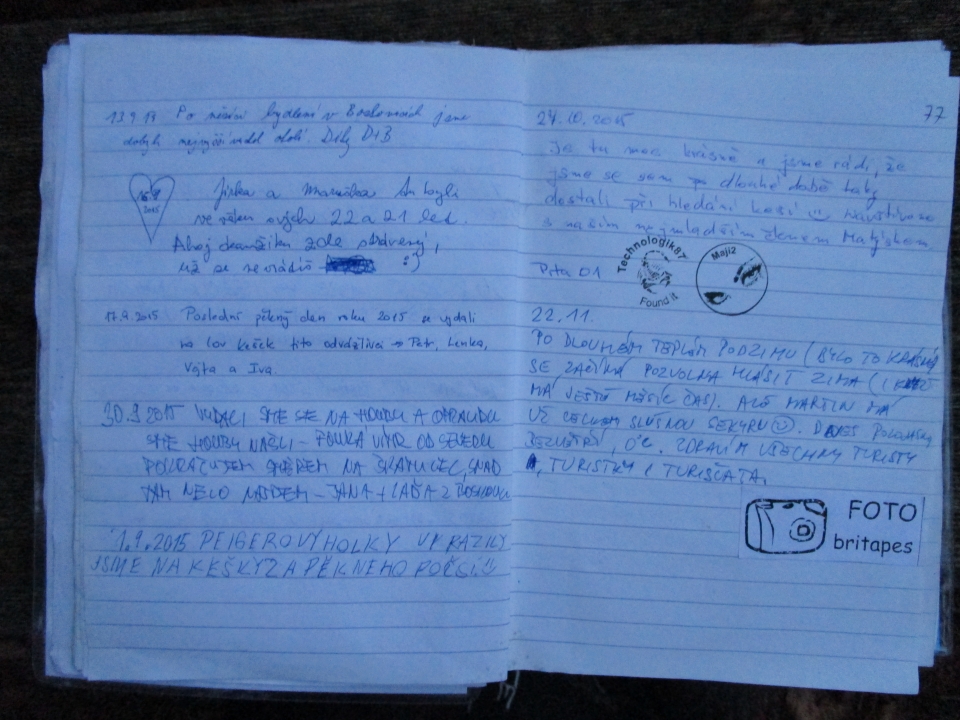 13.9.15 Po měsíci bydlení v jsme
dobyli nejvyšší vrchol okolí. Díky D+B
16.9 2015
Jirka a Maruška tu byli
ve věku svých 22 a 21 let.
Ahoj zde strávený,
už se nevrátíš :)
17.9.2015 Poslední pěkný den roku 2015 se vydali
na lov kešek tito odvážlivci → Petr, Lenka,
Vojta a Iva.
30.9.2015 VYDALI SME SE NA HOUBY A OPRAVDU
SME HOUBY NAŠLI - FOUKÁ VÍTR OD SEVERU
POKRAČUJEM SMĚREM NA SNAD
TAM NĚCO NAJDEM - JANA + LÁĎA Z
1.9.2015 PEIGEROVY HOLKY VYRAZILY
JSME NA KEŠKY ZA PĚKNÉHO POČASÍ
77
24.10.2015
Je tu moc krásně a jsme rádi, že
jsme se sem po dlouhé době taky
dostali při hledání keší
s naším nejmladším členem Matýskem.
Pita 01
Technologik87
Found it
Maji2
22.11.
PO DLOUHÉM TEPLÉM PODZIMU (BYLO TO KRÁSNÉ)
SE ZAČÍNÁ POZVOLNA HLÁSIT ZIMA (I KDYŽ
MÁ JEŠTĚ MĚSÍC ČAS). ALE MARTIN MÁ
UŽ CELKEM SLUŠNOU SEKYRU. DNES POLOJASNO,
BEZVĚTŘÍ, 0°C. ZDRAVÍM VŠECHNY TURISTY
, TURISTKY I TURISŤATA.
FOTO
britapes